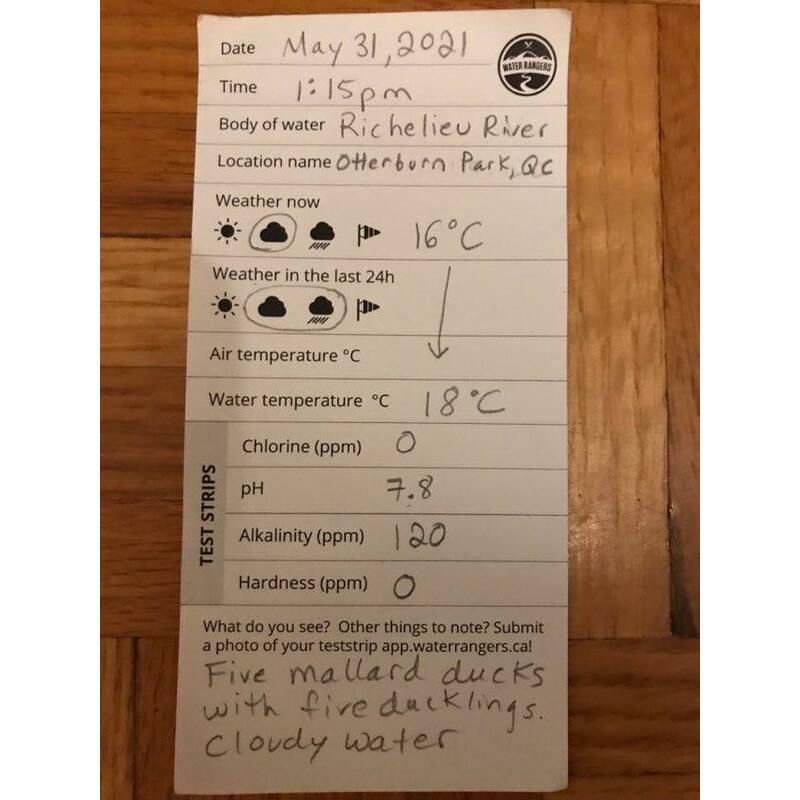 Date May 31, 2021
WATER RANGERS
Time 1:15pm
Body of water Richelieu River
Location name Otterburn Park, QC
Weather now
16°C
Weather in the last 24h
Air temperature °C
Water temperature °C 18°C
TEST STRIPS
Chlorine (ppm) 0
pH 7.8
Alkalinity (ppm) 120
Hardness (ppm) 0
What do you see? Other things to note? Submit
a photo of your teststrip app.waterrangers.ca!
Five mallard ducks
with five ducklings.
Cloudy water